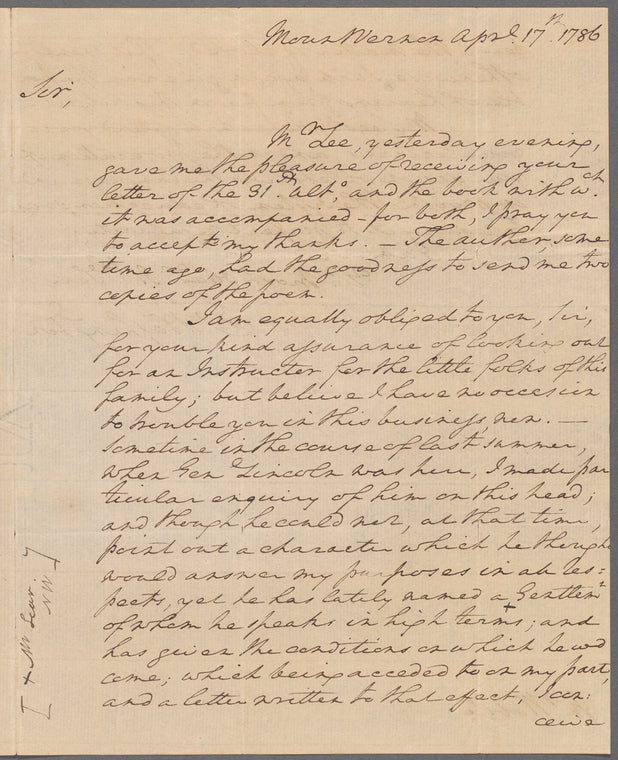 Mount Vernon Aprl. 17th. 1786
Sir,
Mr Lee, yesterday evening,
gave me the pleasure of receiving your
letter of the 31st. ulto., and the book with wch.
it was accompanied - for both, I pray you
to accept my thanks. — The author, some
time ago, had the goodness to send me two
copies of the poem.
I am equally obliged to you, Sir,
for your kind assurance of looking out
for an Instructer for the little folks of this
family; but believe I have no occasion
to trouble you in this business, now. —
Sometime in the course of last summer,
when Genl Lincoln was here, I made par
ticular enquiry of him on this head;
and though he could not, at that time,
point out a character which he thought
would answer my purposes in all res=
pects, yet he has lately named a Gentlemn
of whom he speaks in high terms +; and
has given the conditions on which he wd
come; which being acceded to on my part,
and a letter written to that effect, I con:
ceive
[+ Mr Lear. NW]